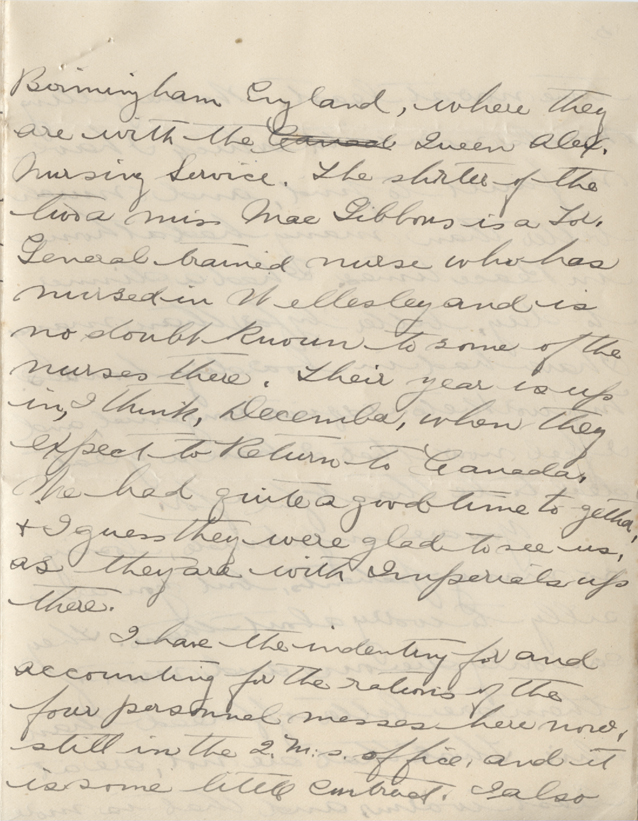 Birmingham England, where they
are with the Canad Queen Alex.
Nursing Service. The shorter of the
two a miss Mac Gibbons is a Tor.
General trained nurse who has
nursed in Wellesley and is
no doubt known to some of the
nurses there. Their year is up
in, I think, December, when they
expect to Return to Canada.
We had quite a good time to gether,
& I guess they were glad to see us,
as they are with Imperials up
there.
I have the indenting for and
accounting for the rations of the
four personnel messes here now,
still in the Q.M.S. office, and it
is some little contract. I also